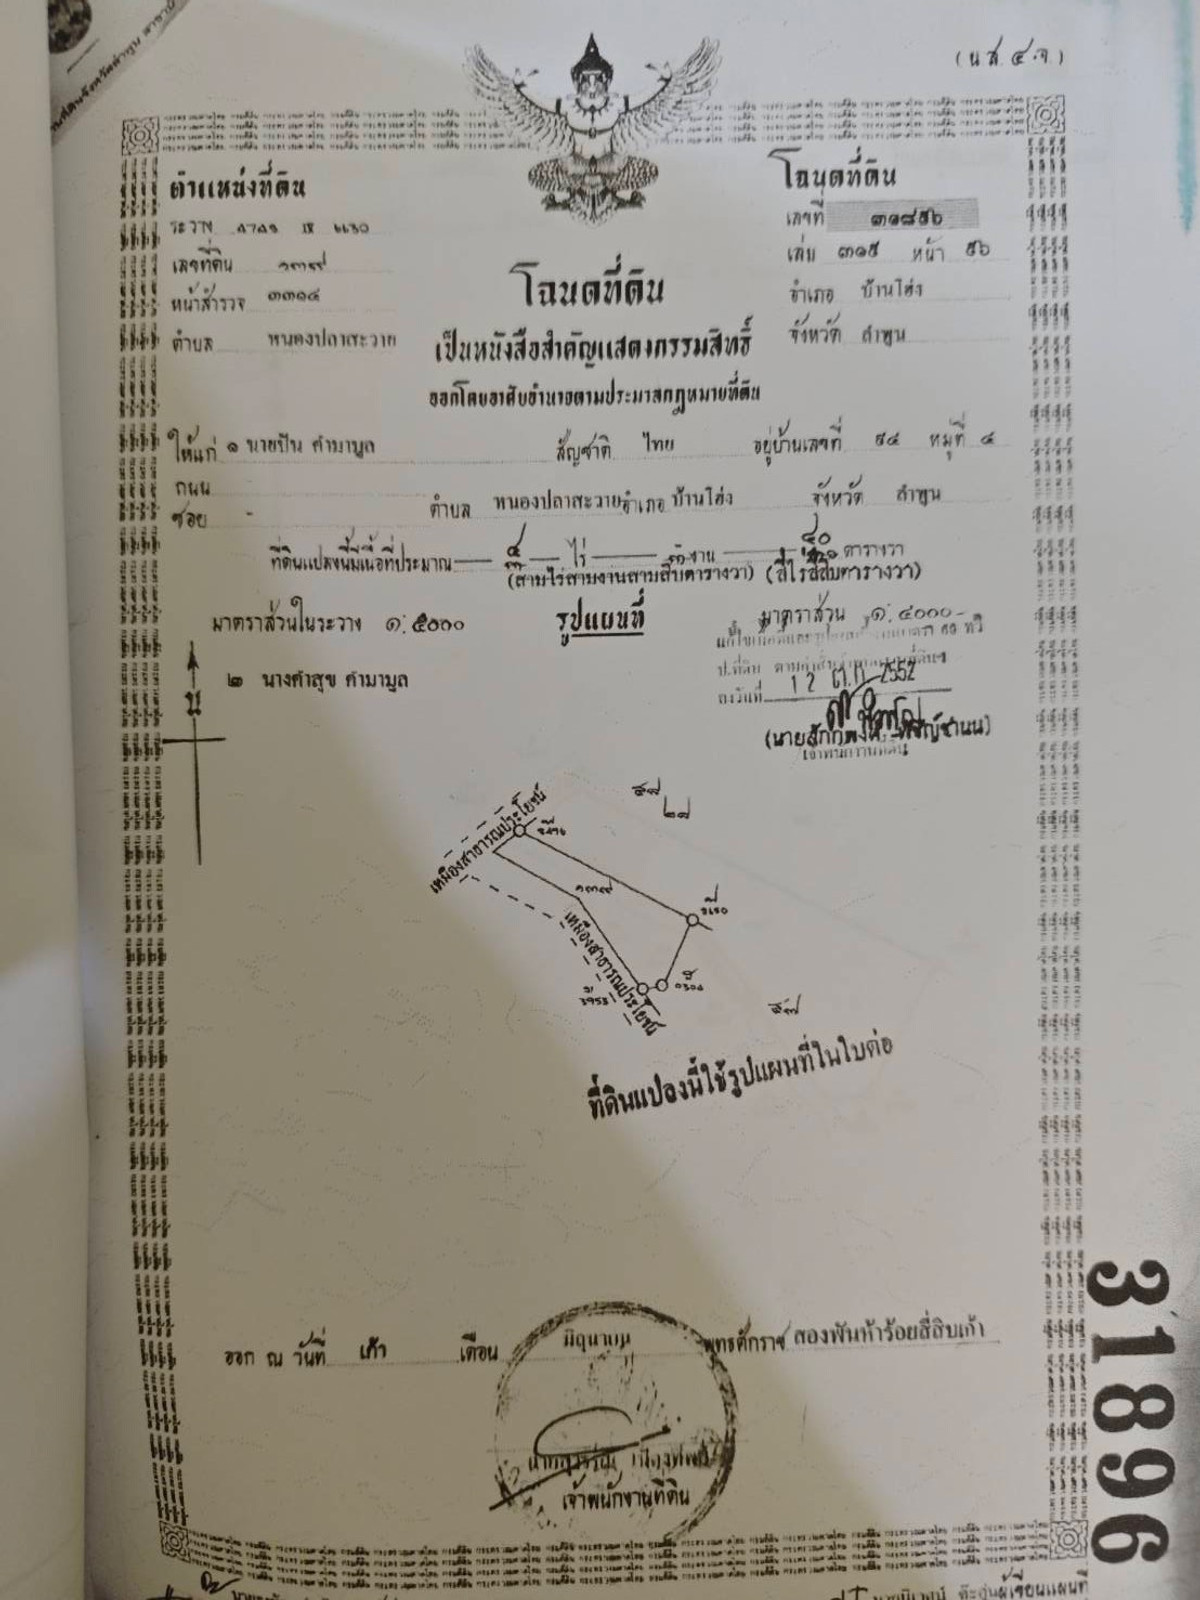 (น.ส.๔.จ.)
ตำแหน่งที่ดิน
ระวาง
เลขที่ดิน ๑๓๙
หน้าสำรวจ ๓๓๑๔
ตำบล หนองปลาสะวาย
โฉนดที่ดิน
เลขที่ ๓๑๘๙๖
เล่ม ๓๑๙ หน้า ๙๖
อำเภอ บ้านโฮ่ง
จังหวัด ลำพูน
โฉนดที่ดิน
เป็นหนังสือสำคัญแสดงกรรมสิทธิ์
ออกโดยอาศัยอำนาจตามประมวลกฎหมายที่ดิน
ให้แก่ ๑ นายปัน คำมามูล สัญชาติ ไทย อยู่บ้านเลขที่ ๙๔ หมู่ที่ ๔
ถนน
ซอย - ตำบล หนองปลาสะวาย อำเภอ บ้านโฮ่ง จังหวัด ลำพูน
ที่ดินแปลงนี้มีเนื้อที่ประมาณ ๔ ไร่ งาน ๔๐ ตารางวา
(สามไร่สามงานสามสิบตารางวา) (สี่ไร่สี่สิบตารางวา)
มาตราส่วนในระวาง ๑:๕๐๐๐ รูปแผนที่ มาตราส่วน ๑:๔๐๐๐
ป.ที่ดิน
ลงวันที่ 12 ต.ค. 2552
น
๒ นางคำสุข คำมามูล
๒๘
เหมืองสาธารณประโยชน์
๑๓๙
เหมืองสาธารณประโยชน์
ที่ดินแปลงนี้ใช้รูปแผนที่ในใบต่อ
ออก ณ วันที่ เก้า เดือน มิถุนายน พุทธศักราช สองพันห้าร้อยสี่สิบเก้า
เจ้าพนักงานที่ดิน
31896